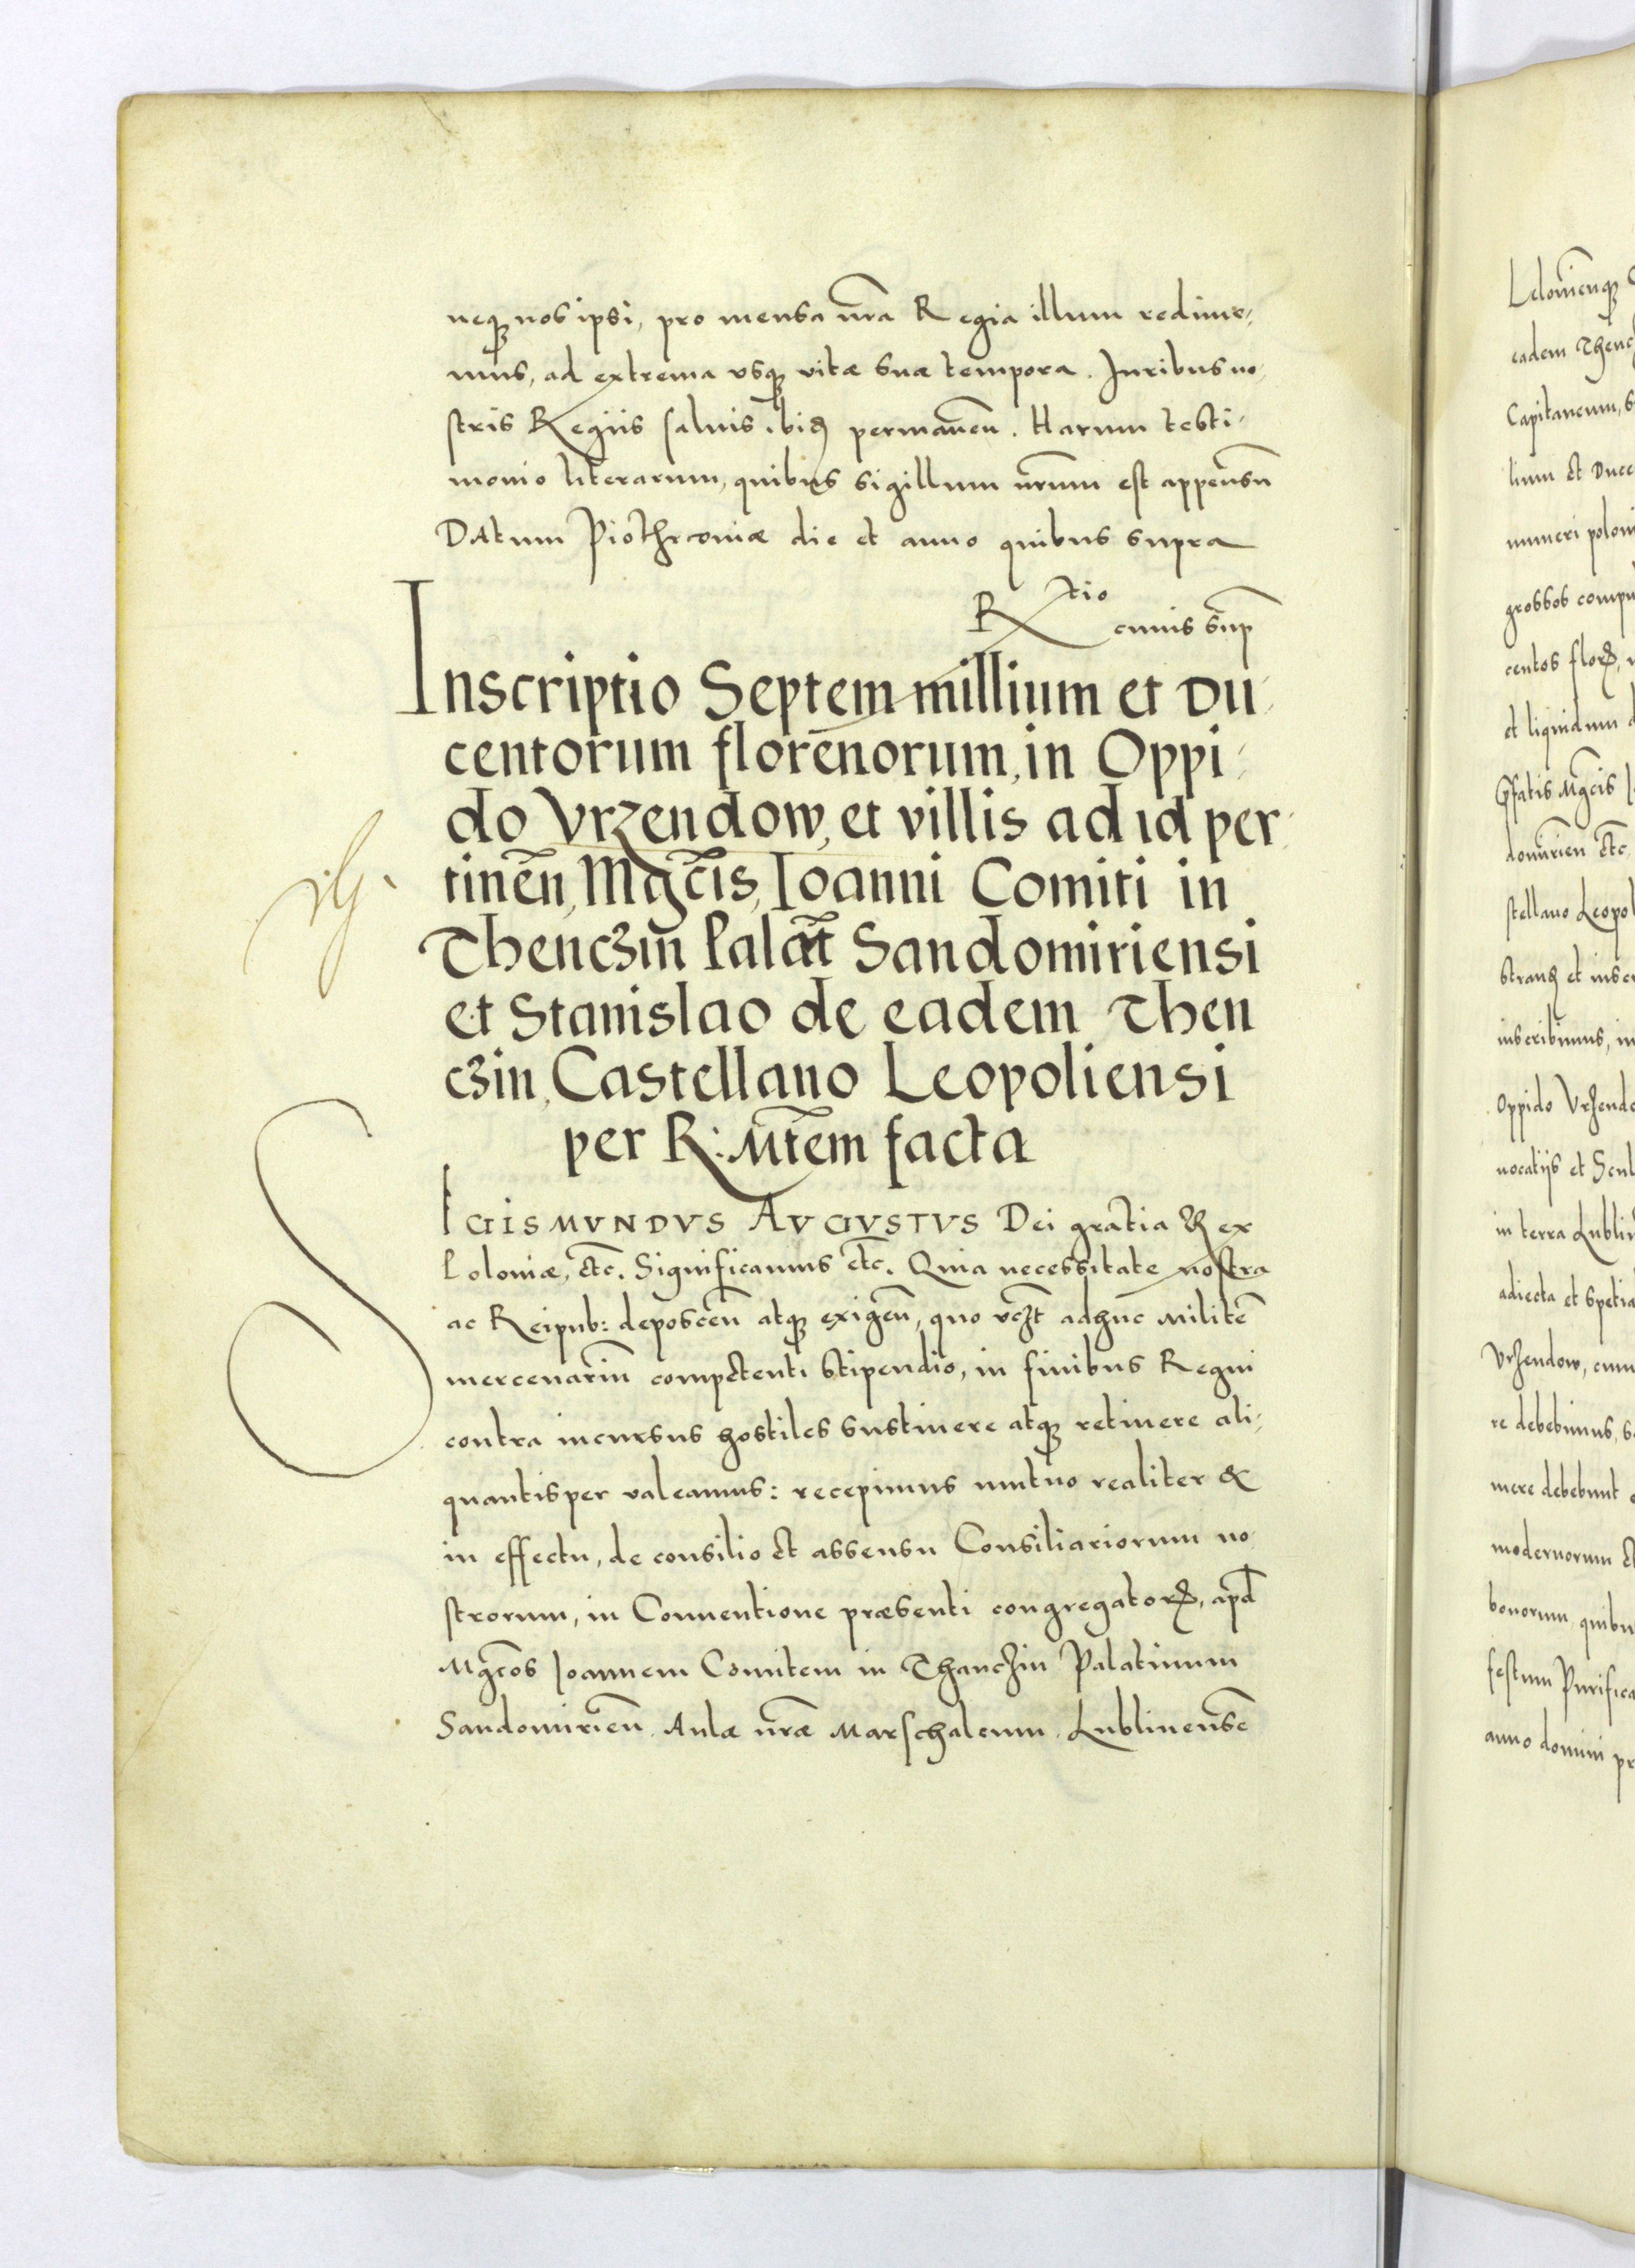 neq nos ipsi, pro mensa nr̃a Regia illum redime,
mus, ad extrema usq vitæ suæ tempora. Iuribus no,
stris Regiis salvis ibid permaneñ. Harum testi,
monio literarum, quibus sigillum nr̃um est appensũ
DAtum Piothrcoviæ die et anno quibus supra
Rtio
cuius sup̃
Inscriptio Septem millium et Du,
centorum florenorum, in Oppi,
do Vrzendow, et villis ad id per,
tineñ, Mgc̃is, Ioanni Comiti in
Thenczin̄ Palat̃ Sandomiriensi
et Stanislao de eadem Then
czin, Castellano Leopoliensi
per R: Mt̃em facta
SIGISMVNDVS AVGVSTVS Dei gratia Rex
Poloniæ, etc̃. Significamus etc̃. Quia necessitate nostra
ac Reipub: deposceñ atq exigeñ, quo vczt̃ adhuc Militẽ
mercenariũ competenti stipendio, in finibus Regni
contra incursus hostiles sustinere atq retinere ali,
quantisper valeamus: recepimus mutuo realiter &
in effectu, de consilio et assensu Consiliariorum no,
strorum, in Conventione præsenti congregator, apd̃
Mgc̃os Ioannem Comitem in Thanczin Palatinum
Sandomirieñ. Aulæ nr̃æ Marschalcum. Lublinensẽ
Lelovieñq
eadem Thencz
Capitaneum, s
lium et Ducc
numeri poloni
grossos compu
centos flor,
et liquidum d
Mgc̃is I
domirieñ etc̃
stellano Leopol
et inscr
inscribimus, in
Oppido Vrzendo
et Scul
in terra Lubliñ
adiecta et spetia
Vrzendow, cum
re debebimus, s
mere debebunt
modernorum et
bonorum, quibu
festum Purifica
anno domini pr